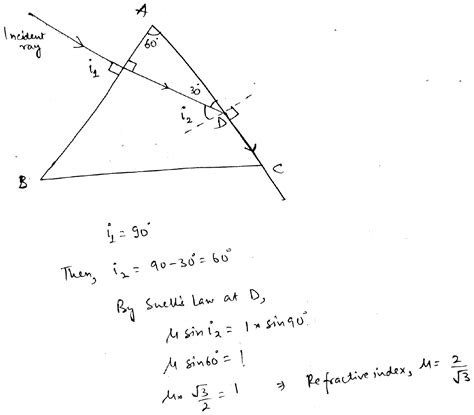 A
Incident
ray
60°
i₁
30°
i₂
D
B
C
i₁ = 90°
Then, i₂ = 90-30° = 60°
By Snell's Law at D,
μ sin i₂ = 1 × sin 90°
μ sin 60° = 1
μ × √3/2 = 1 ⇒ Refractive index, μ = 2/√3